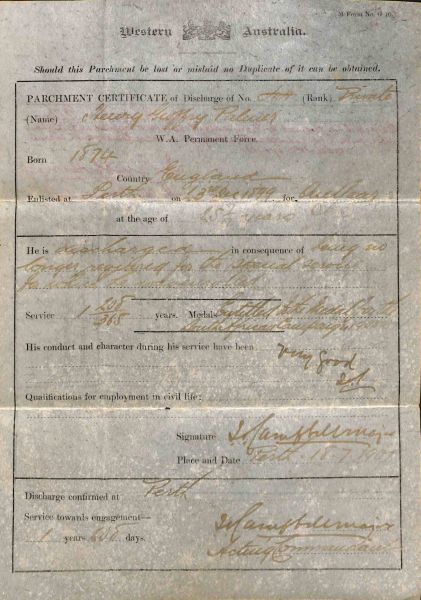 M Form No. G 10.
Western Australia.
Should this Parchment be lost or mislaid no Duplicate of it can be obtained.
PARCHMENT CERTIFICATE of Discharge of No. (Rank) Private
(Name) Palmer
W.A. Permanent Force.
Born 1874
Country England
Enlisted at Perth on 1899 for
at the age of years
He is discharged in consequence of being no
longer required for the special service
for which he
Service 1 208/365 years. Medals Entitled to the Medal for the
South African Campaign
His conduct and character during his service have been very good
Qualifications for employment in civil life:
Signature J Campbell Major
Place and Date Perth 18.7.
Discharge confirmed at Perth
Service towards engagement—
1 years days.
J Campbell Major
Acting Commandant